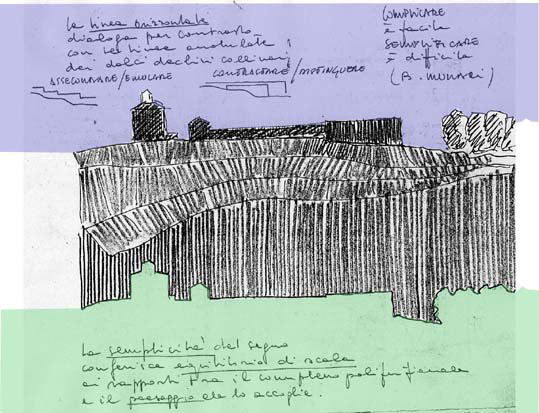 la linea orizzontale
dialoga per contrasto
con le linee ondulate
dei dolci declivi collinari
ASSECONDARE/EMULARE
CONTRASTARE/DISTINGUERE
COMPLICARE
è facile
SEMPLIFICARE
è difficile
(B. MUNARI)
la semplicità del segno
conferisce equilibrio di scala
ai rapporti tra il complesso polifunzionale
e il paesaggio che lo accoglie.